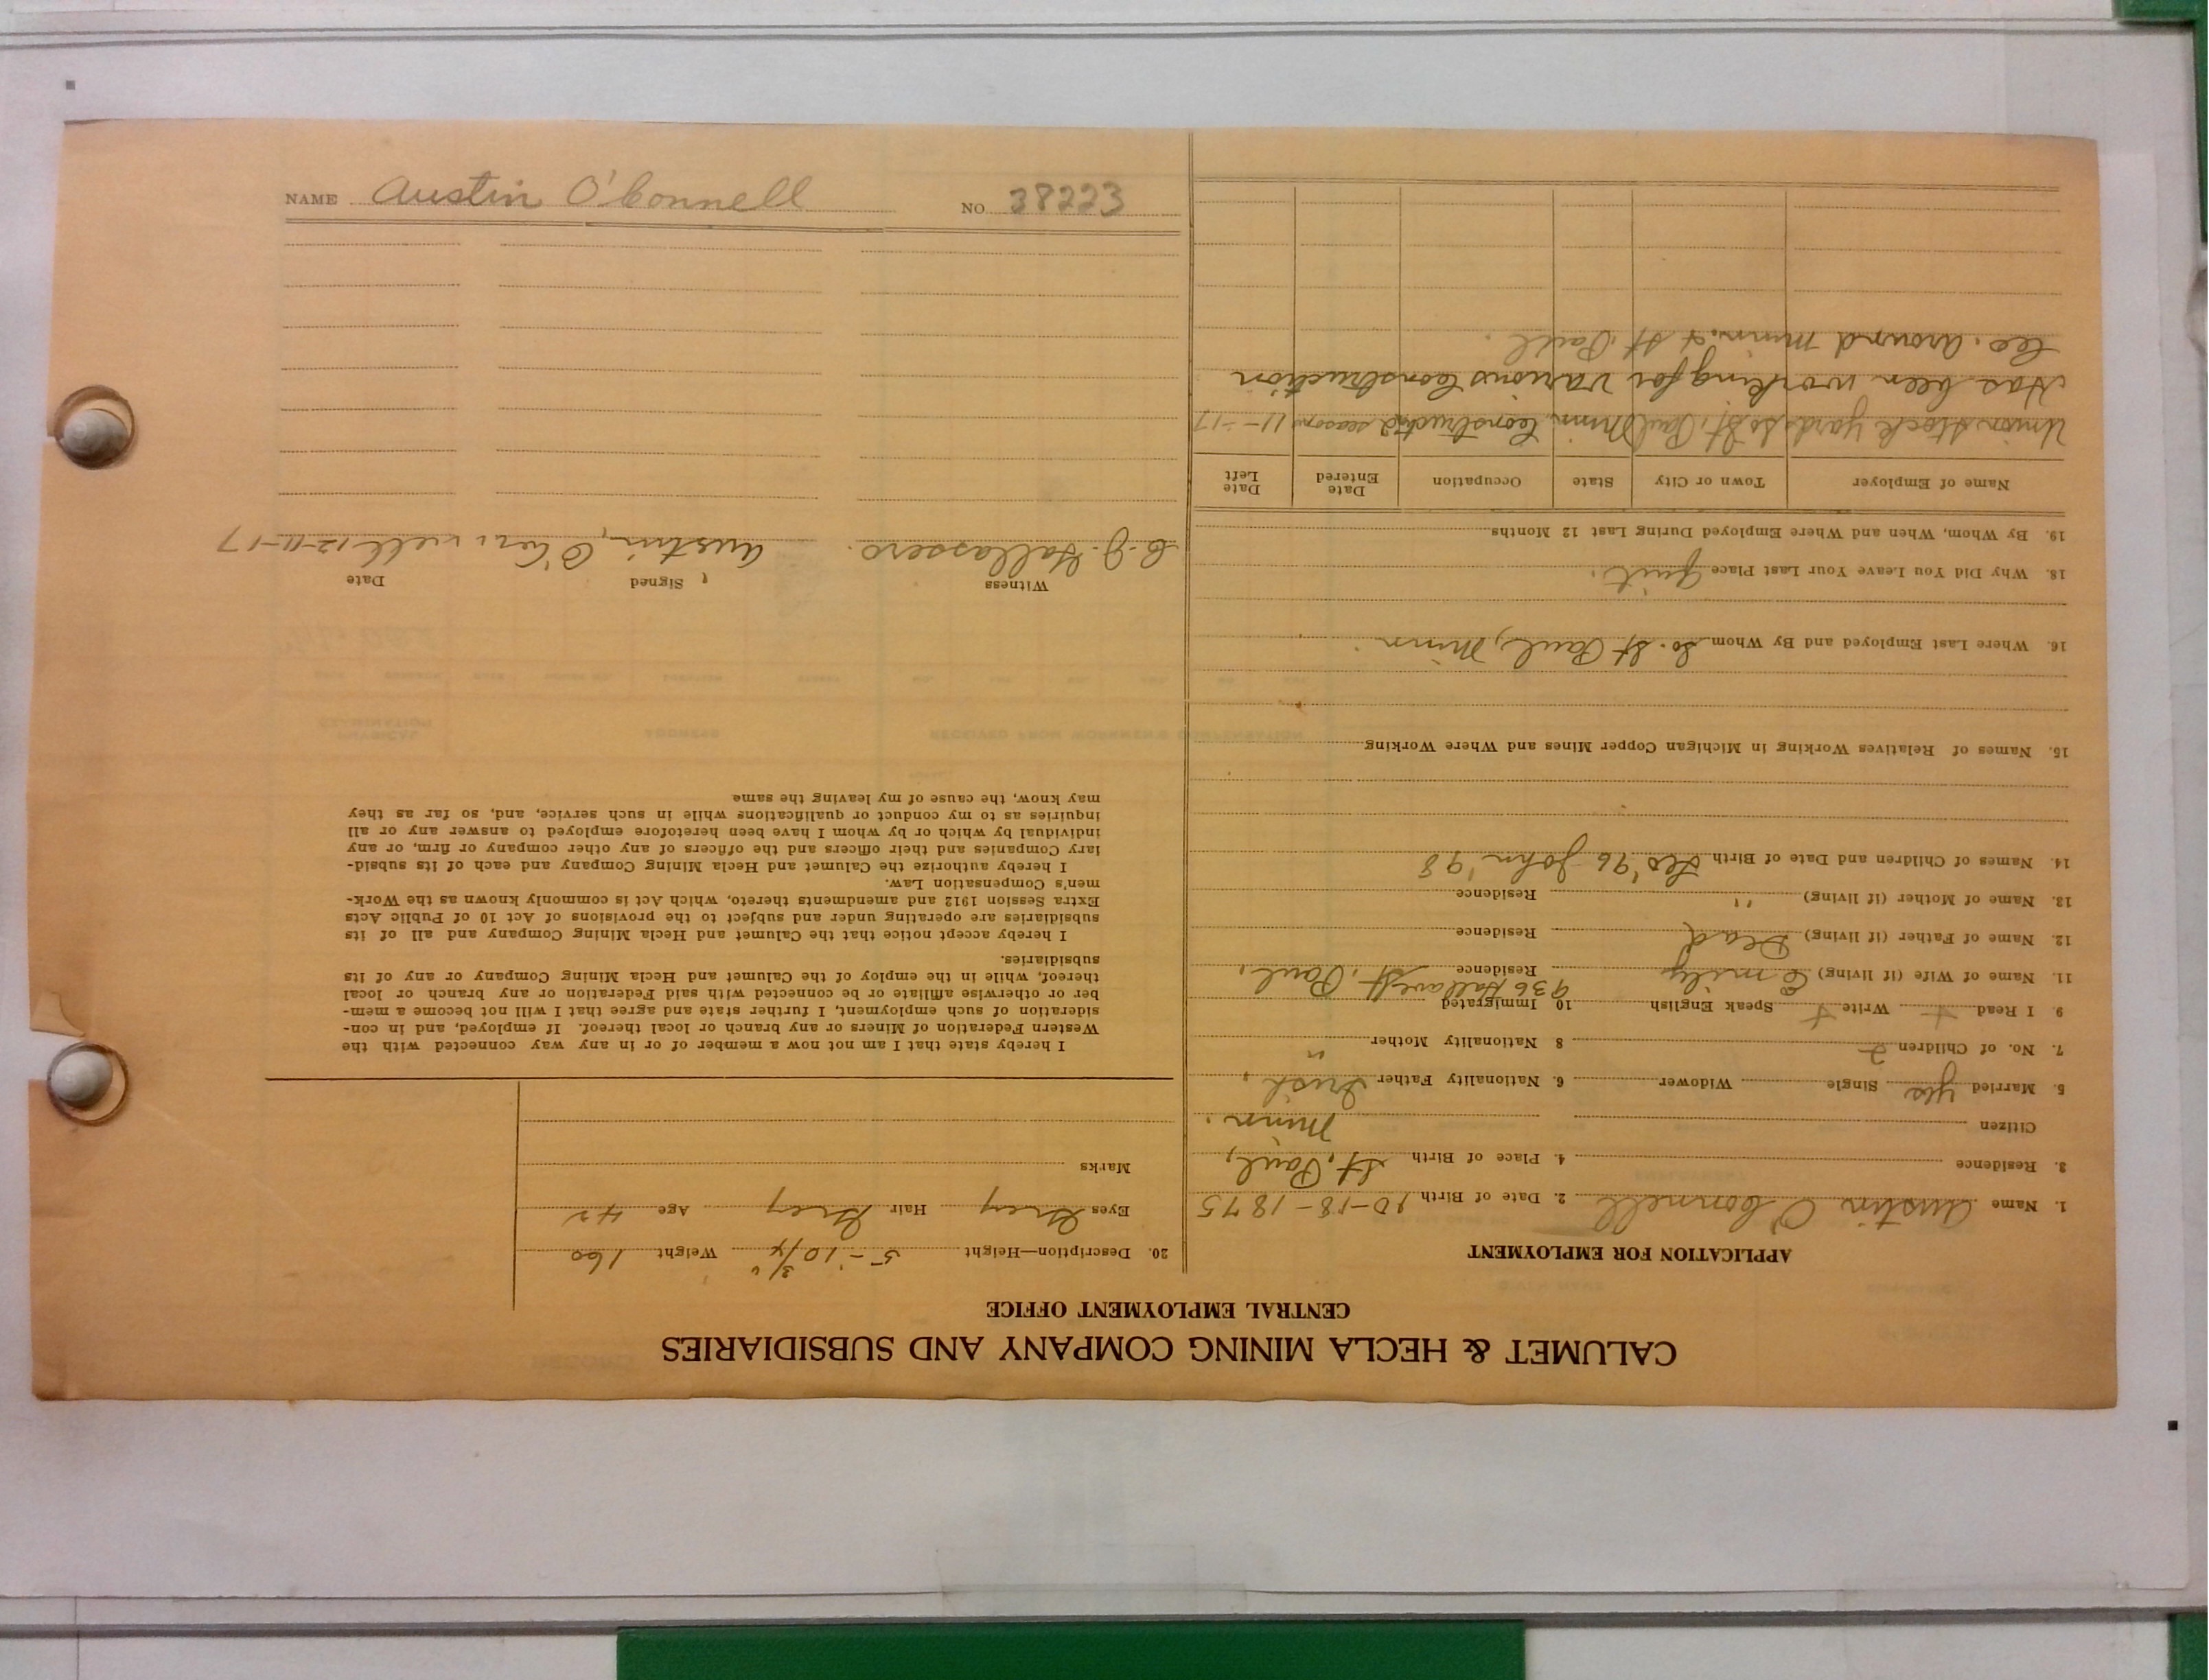 CALUMET & HECLA MINING COMPANY AND SUBSIDIARIES
CENTRAL EMPLOYMENT OFFICE
APPLICATION FOR EMPLOYMENT
1. Name Austin O'Connell 2. Date of Birth 10-18-1875
3. Residence 4. Place of Birth St. Paul,
Citizen Minn.
5. Married yes Single Widower 6. Nationality Father Irish
7. No. of Children 2 8 Nationality Mother "
9. I Read + Write + Speak English 10 Immigrated
936 St.
11. Name of Wife (if living) Emily Residence St. Paul.
12. Name of Father (if living) Dead Residence
13. Name of Mother (if living) " Residence
14. Names of Children and Date of Birth Leo '96 John '98
15. Names of Relatives Working in Michigan Copper Mines and Where Working
16. Where Last Employed and By Whom So. St Paul, Minn
18. Why Did You Leave Your Last Place Quit.
19. By Whom, When and Where Employed During Last 12 Months
Name of Employer Town or City State Occupation Date Entered Date Left
Union Stock Yards So St. Paul Minn. Construction season 11-17
Has been working for various Construction
Co. around Minn. & St. Paul.
20. Description—Height 5'-10 3/4" Weight 160
Eyes Grey Hair Grey Age 42
Marks
I hereby state that I am not now a member of or in any way connected with the
Western Federation of Miners or any branch or local thereof. If employed, and in con-
sideration of such employment, I further state and agree that I will not become a mem-
ber or otherwise affiliate or be connected with said Federation or any branch or local
thereof, while in the employ of the Calumet and Hecla Mining Company or any of its
subsidiaries.
I hereby accept notice that the Calumet and Hecla Mining Company and all of its
subsidiaries are operating under and subject to the provisions of Act 10 of Public Acts
Extra Session 1912 and amendments thereto, which Act is commonly known as the Work-
men's Compensation Law.
I hereby authorize the Calumet and Hecla Mining Company and each of its subsid-
iary Companies and their officers and the officers of any other company or firm, or any
individual by which or by whom I have been heretofore employed to answer any or all
inquiries as to my conduct or qualifications while in such service, and, so far as they
may know, the cause of my leaving the same
Witness Signed Date
Austin 12-11-17
NAME Austin O'Connell NO. 38223